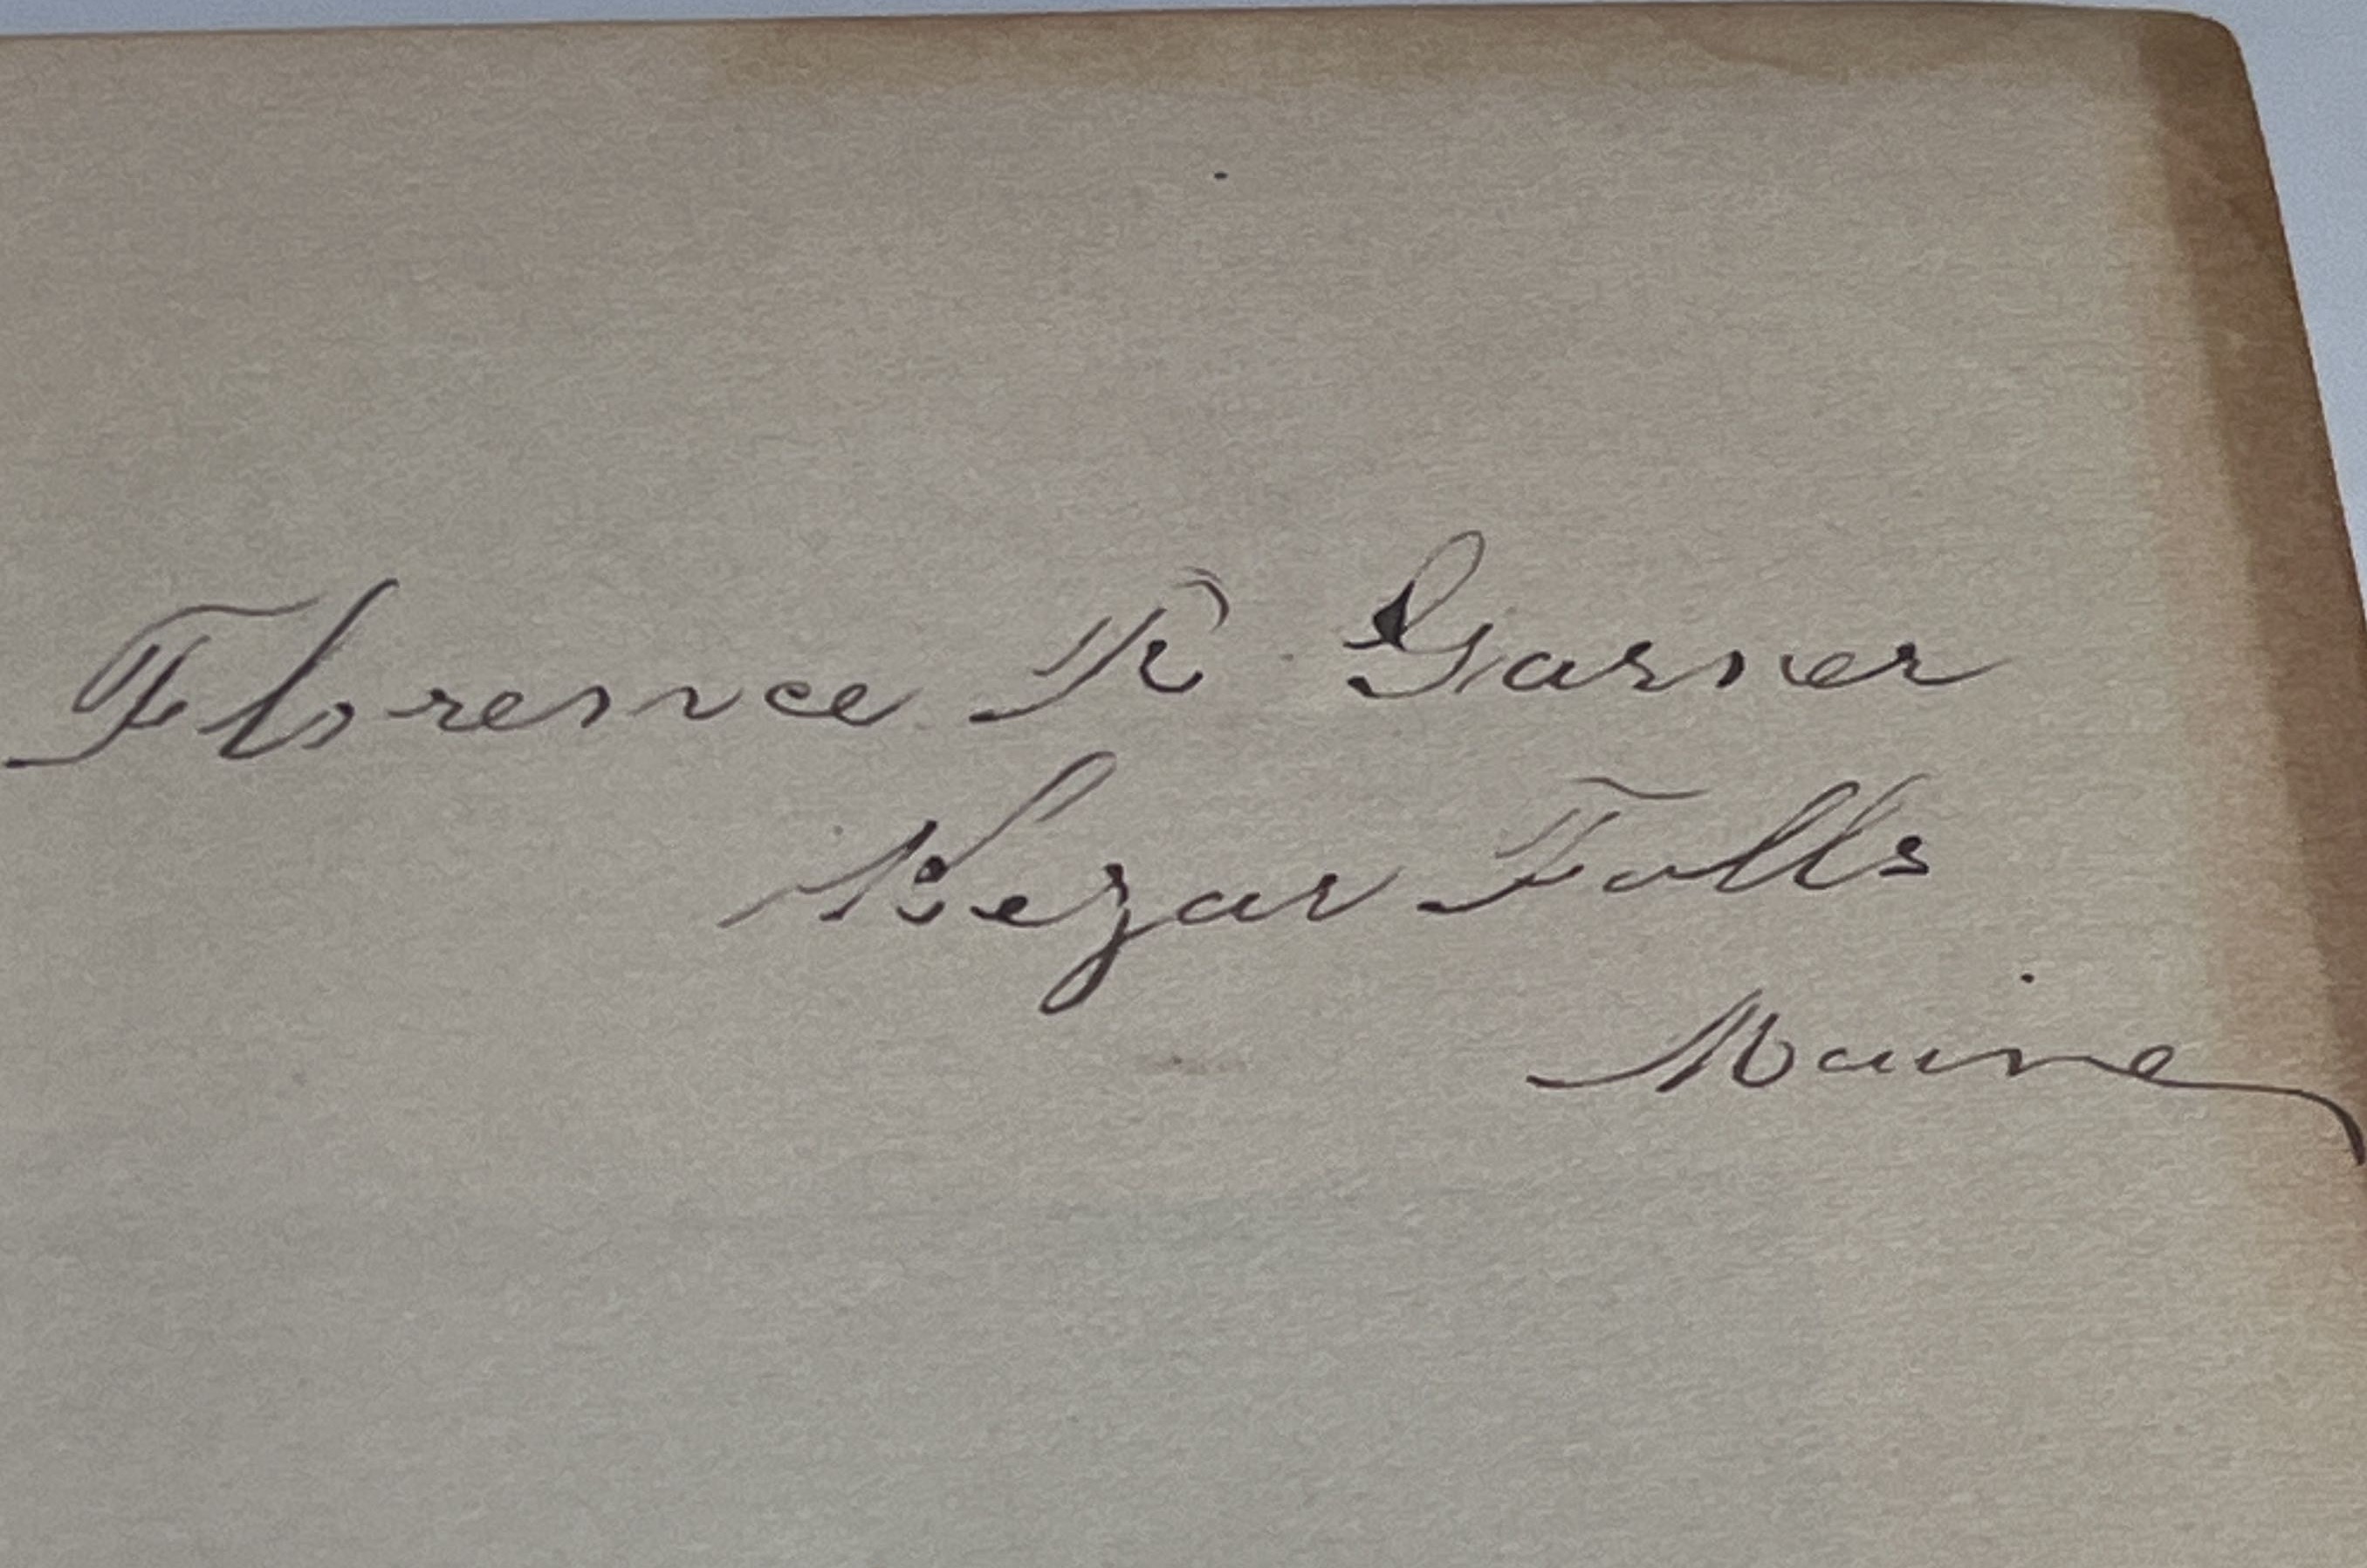 Florence R Garner
Kezar Falls
Maine